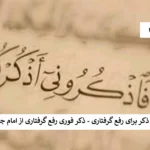 فَاذْكُرُونِي أَذْكُرْ
ذکر برای رفع گرفتاری - ذکر فوری رفع گرفتاری از امام ج